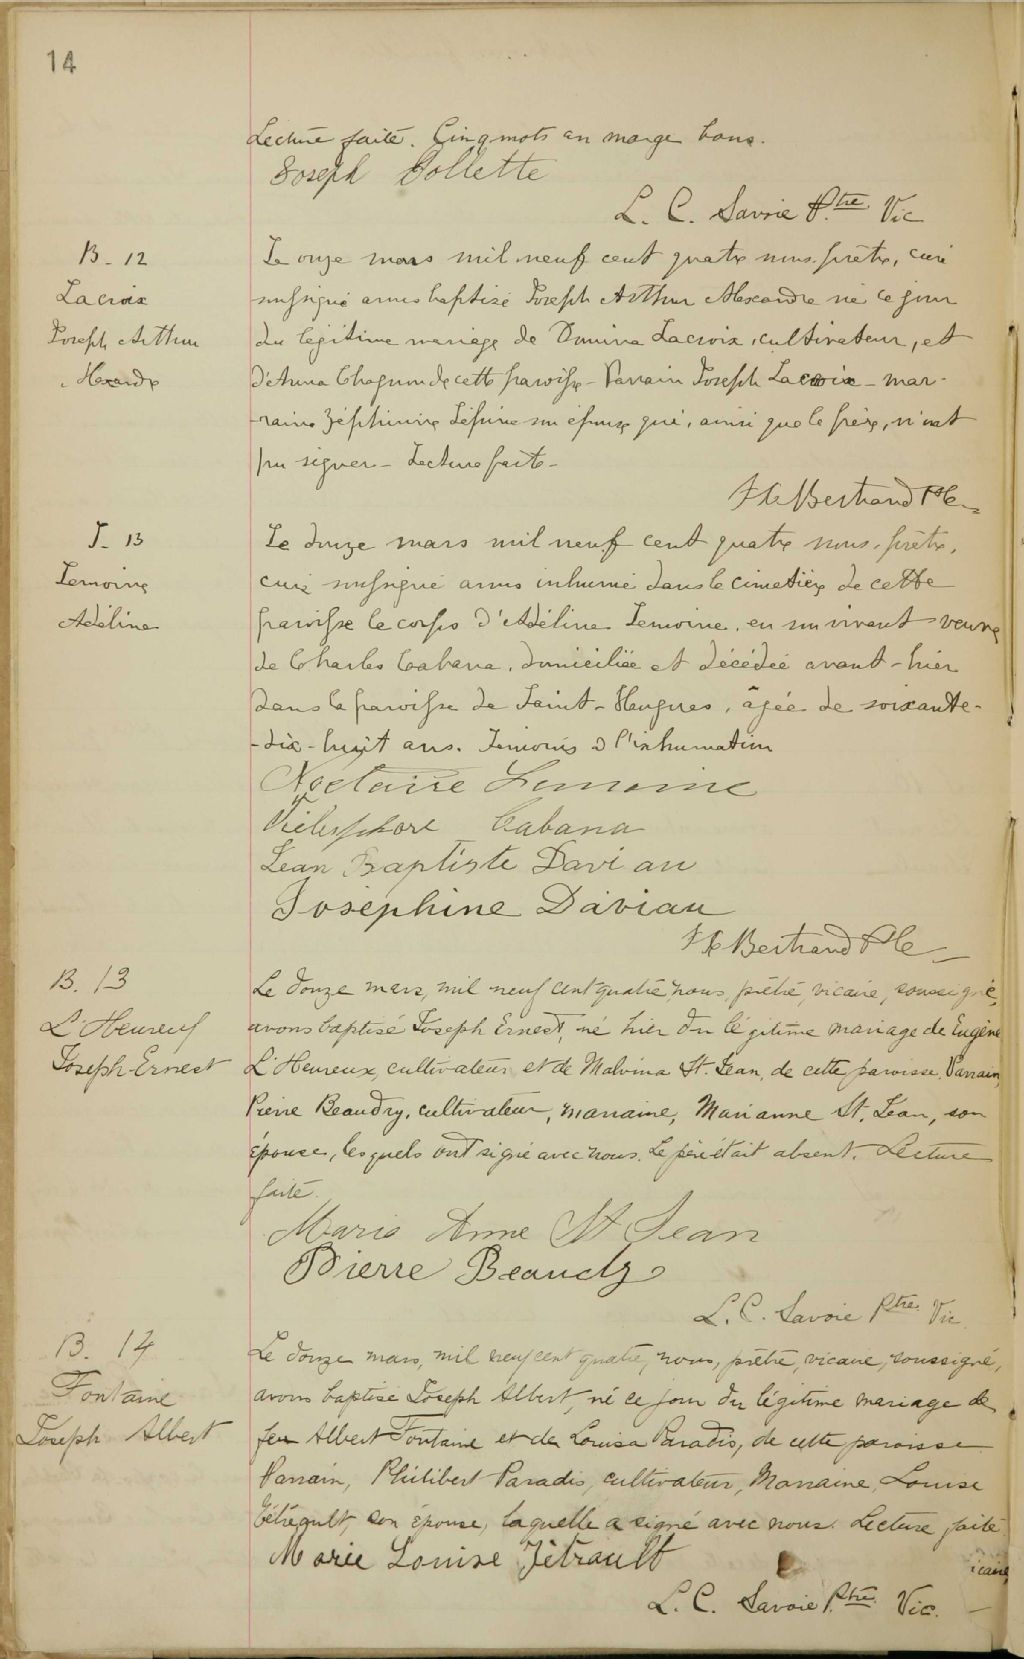 14
Lecture faite. Cinq mots en marge bons.
Joseph Collette
L. C. Savoie Ptre. Vic
B - 12
Lacroix
Joseph Arthur
Alexandre
Le onze mars mil neuf cent quatre nous prêtre, curé
soussigné avons baptisé Joseph Arthur Alexandre né ce jour
du légitime mariage de Domina Lacroix, cultivateur, et
d'Anna Chagnon de cette paroisse - Parrain Joseph Lacroix - mar-
-raine Zéphirine Lépine son épouse qui, ainsi que le père, n'ont
pu signer - Lecture faite -
Bertrand Ptre
S - 13
Lemoine
Adéline
Le douze mars mil neuf cent quatre nous, prêtre,
curé soussigné avons inhumé dans le cimetière de cette
paroisse le corps d'Adéline Lemoine, en son vivant veuve
de Charles Cabana, domiciliée et décédée avant-hier
dans la paroisse de Saint-Hugues, âgée de soixante-
-dix-huit ans. Témoins à l'inhumation
Nectaire Lemoine
Télesphore Cabana
Jean Baptiste Daviau
Josephine Daviau
Bertrand Ptre
B. 13
L'Heureux
Joseph-Ernest
Le douze mars, mil neuf cent quatre, nous, prêtre, vicaire, soussigné,
avons baptisé Joseph Ernest, né hier du légitime mariage de Eugène
L'Heureux, cultivateur et de Malvina St. Jean, de cette paroisse. Parrain,
Pierre Beaudry, cultivateur, marraine, Marianne St. Jean, son
épouse, lesquels ont signé avec nous. Le père était absent. Lecture
faite.
Marie Anne St Jean
Pierre Beaudry
L. C. Savoie Ptre. Vic.
B. 14
Fontaine
Joseph Albert
Le douze mars, mil neuf cent quatre, nous, prêtre, vicaire, soussigné,
avons baptisé Joseph Albert, né ce jour du légitime mariage de
feu Albert Fontaine et de Louisa Paradis, de cette paroisse
Parrain, Philibert Paradis, cultivateur, Marraine, Louise
Tétreault, son épouse, laquelle a signé avec nous. Lecture faite
Marie Louise Tétrault
icaire,
L. C. Savoie Ptre. Vic.